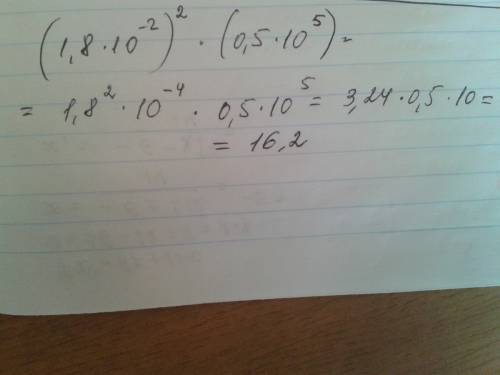 (1,8·10⁻²)²·(0,5·10⁵)=
= 1,8²·10⁻⁴·0,5·10⁵= 3,24·0,5·10=
= 16,2